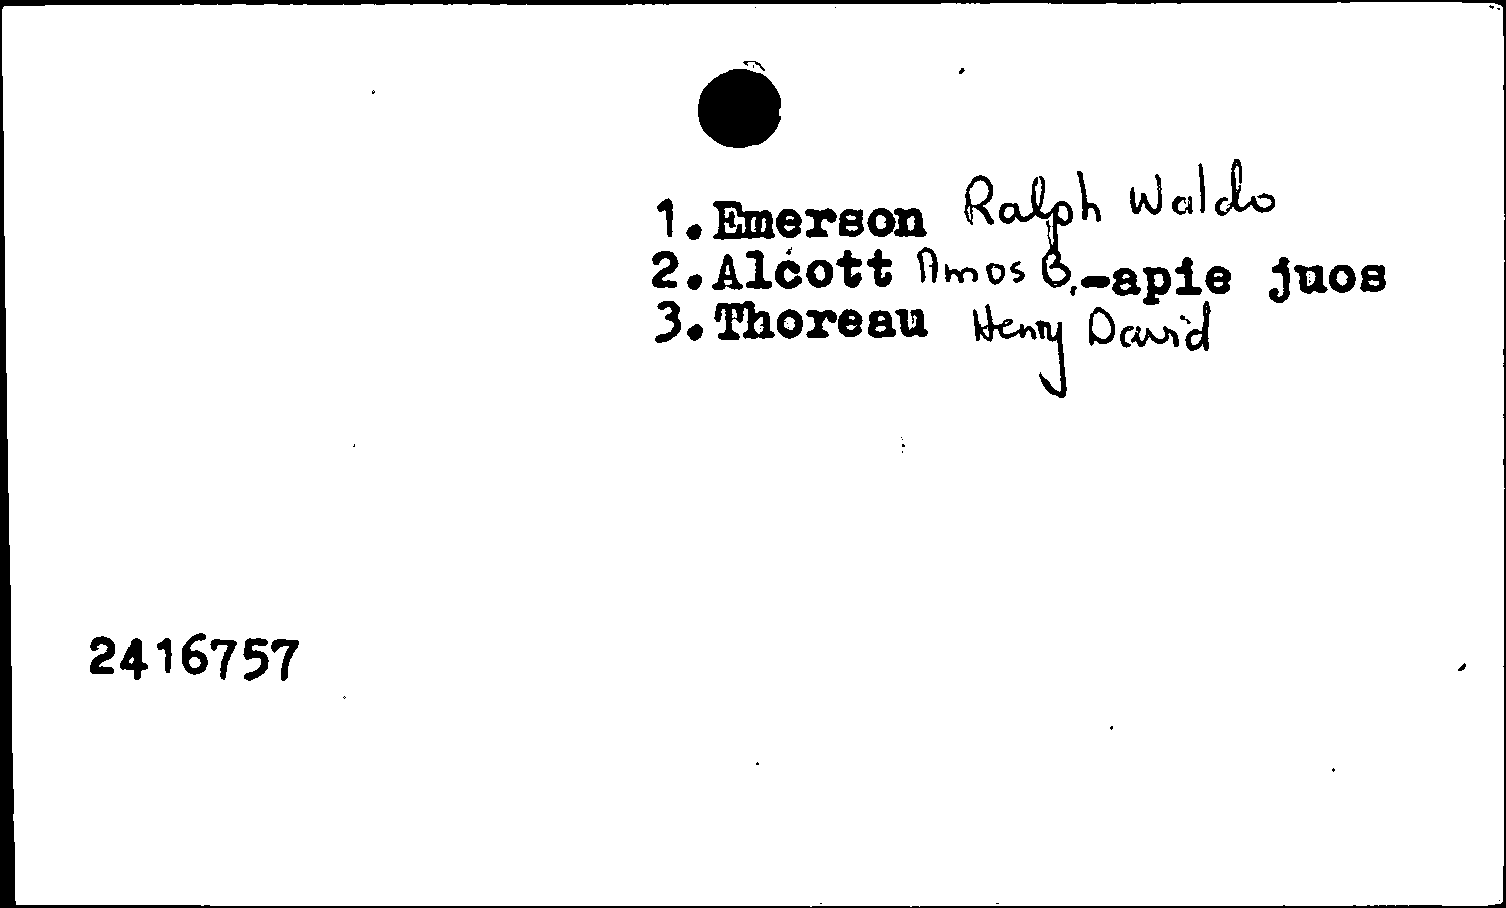 1.Emerson Ralph Waldo
2.Alcott Amos B.-apie juos
3.Thoreau Henry David
2416757